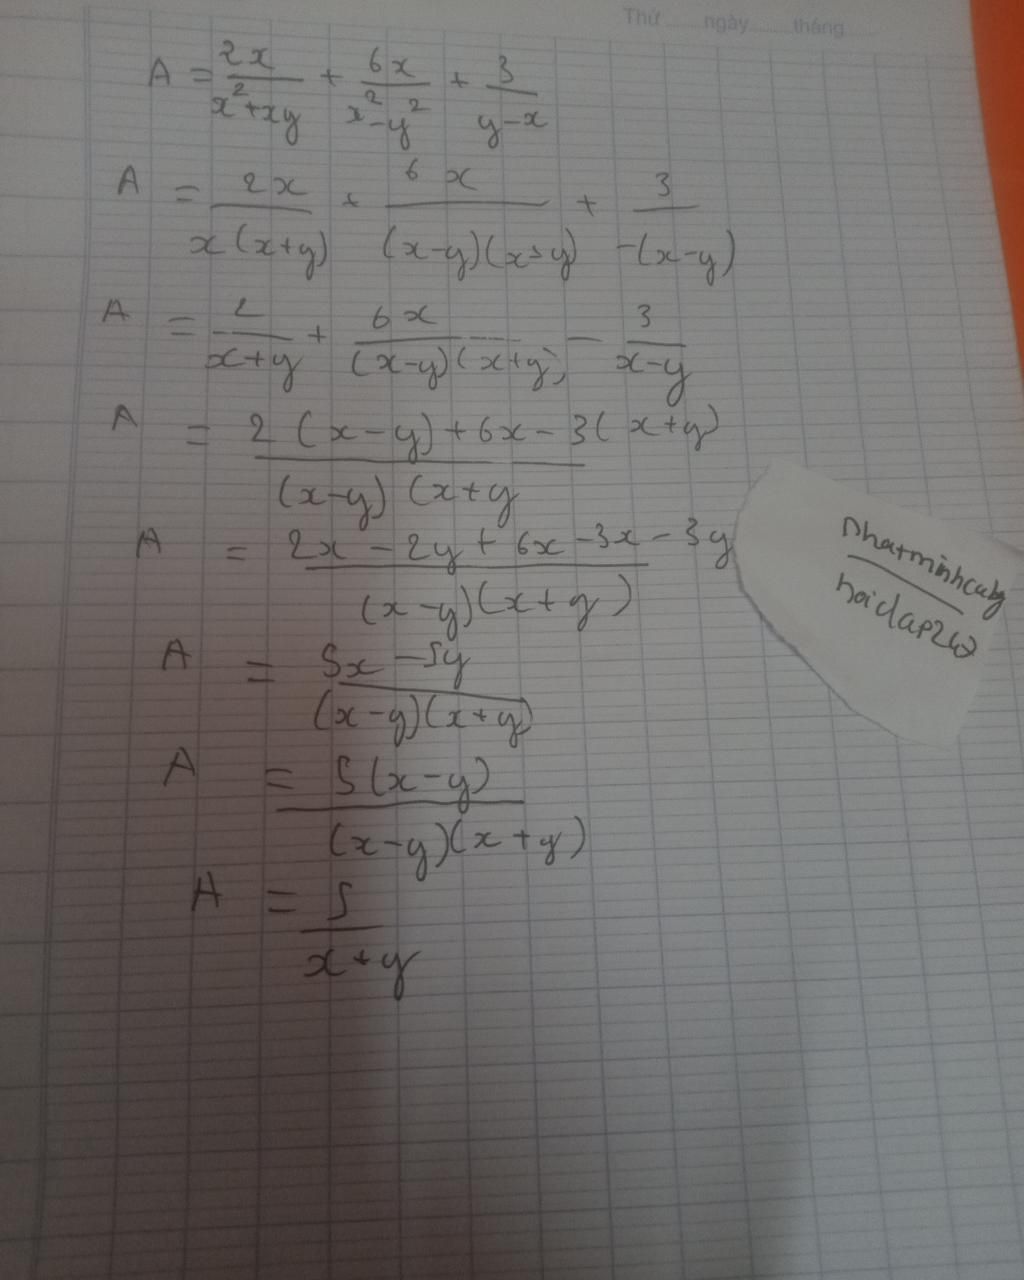 Thứ ngày tháng
A = 2x/(x²+xy) + 6x/(x²-y²) + 3/(y-x)
A = 2x/(x(x+y)) + 6x/((x-y)(x+y)) + 3/(-(x-y))
A = 2/(x+y) + 6x/((x-y)(x+y)) - 3/(x-y)
A = (2(x-y)+6x-3(x+y))/((x-y)(x+y
A = (2x-2y+6x-3x-3y)/((x-y)(x+y))
A = (5x-5y)/((x-y)(x+y))
A = 5(x-y)/((x-y)(x+y))
A = 5/(x+y)
hoidap247